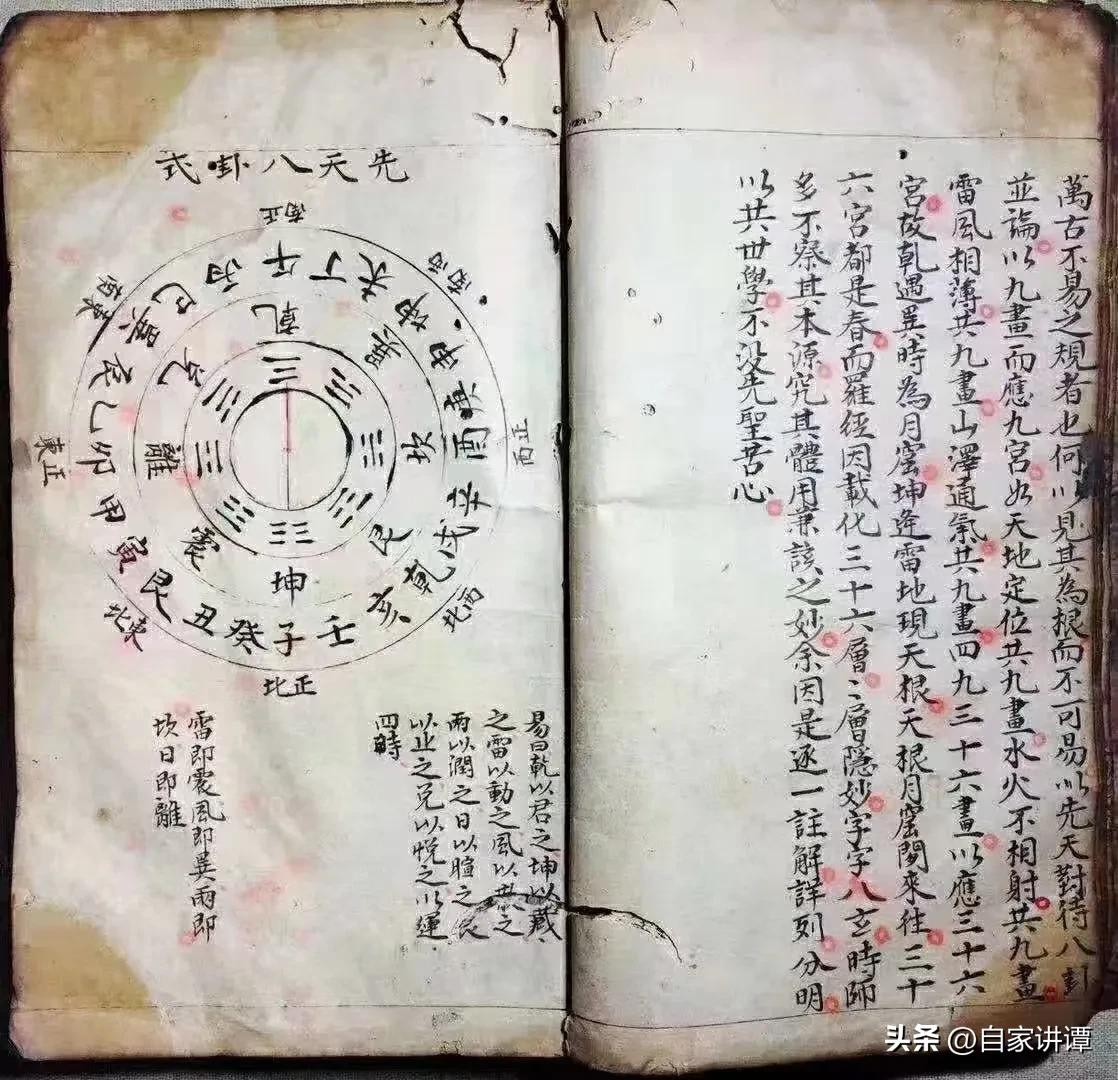 萬古不易之規者也何以見其為根而不可易以先天對待八卦
並論以九畫而應九宮如天地定位共九畫水火不相射共九畫
雷風相薄共九畫山澤通氣共九畫四九三十六畫以應三十六
宮故乾遇巽時為月窟坤逢雷地現天根天根月窟閑來往三十
六宮都是春而羅經因載化三十六層〻層隱妙字字八玄時師
多不察其本源究其體用兼該之妙余因是逐一註解詳列分明
以共世學不没先聖苦心
先天八卦式
正南
西南
正西
西北
正北
東北
正東
東南
午丁未坤申庚酉辛戌乾亥壬子癸丑艮寅甲卯乙辰巽巳丙
乾
巽
坎
艮
坤
震
離
兌
☰
☴
☵
☶
☷
☳
☲
☱
易曰乾以君之坤以藏
之雷以動之風以散之
雨以潤之日以暄之艮
以止之兌以悅之以運
四時
雷即震風即巽雨即
坎日即離
头条 @自家讲谭